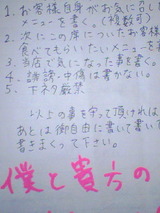 1. お客様自身がお気に召し
メニューを書く。(複数可)
2. 次にこの席についたお客様
食べてもらいたいメニューを
3. 当店で気になった事を書く。
4. 誹謗・中傷は書かない。
5. 下ネタ厳禁
以上の事を守って頂ければ
あとは御自由に書いて書い
書きまくって下さい。
僕と貴方の